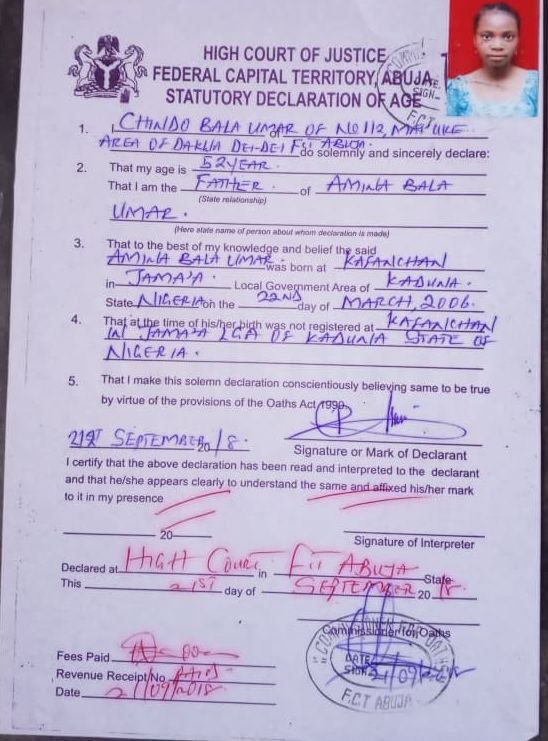 HIGH COURT OF JUSTICE
FEDERAL CAPITAL TERRITORY, ABUJA
STATUTORY DECLARATION OF AGE
COMMI
SIGN
F.C.T
1. I CHINDO BALA UMAR OF NO 112, MATURE
AREA OF DAKWA DEI-DEI FCT ABUJA. do solemnly and sincerely declare:
2. That my age is 52 YEAR.
That I am the FATHER. of AMINA BALA
(State relationship)
UMAR.
(Here state name of person about whom declaration is made)
3. That to the best of my knowledge and belief the said
AMINA BALA UMAR. was born at KAFANCHAN
in JAMA'A Local Government Area of KADUNA.
State NIGERIA on the 22ND day of MARCH, 2006.
4. That at the time of his/her birth was not registered at KAFANCHAN
IN JAMA'A LGA OF KADUNA STATE OF
NIGERIA.
5. That I make this solemn declaration conscientiously believing same to be true
by virtue of the provisions of the Oaths Act 1990.
21ST SEPTEMBER 2018.
Signature or Mark of Declarant
I certify that the above declaration has been read and interpreted to the declarant
and that he/she appears clearly to understand the same and affixed his/her mark
to it in my presence
20
Signature of Interpreter
Declared at HIGH COURT in FCT ABUJA State
This 21ST day of SEPTEMBER 2018
Commissioner for Oaths
"COMMISSIONER FOR OATHS"
DATE
SIGN 21/09/2018
F.C.T ABUJA
Fees Paid
Revenue Receipt No
Date 21/09/2018